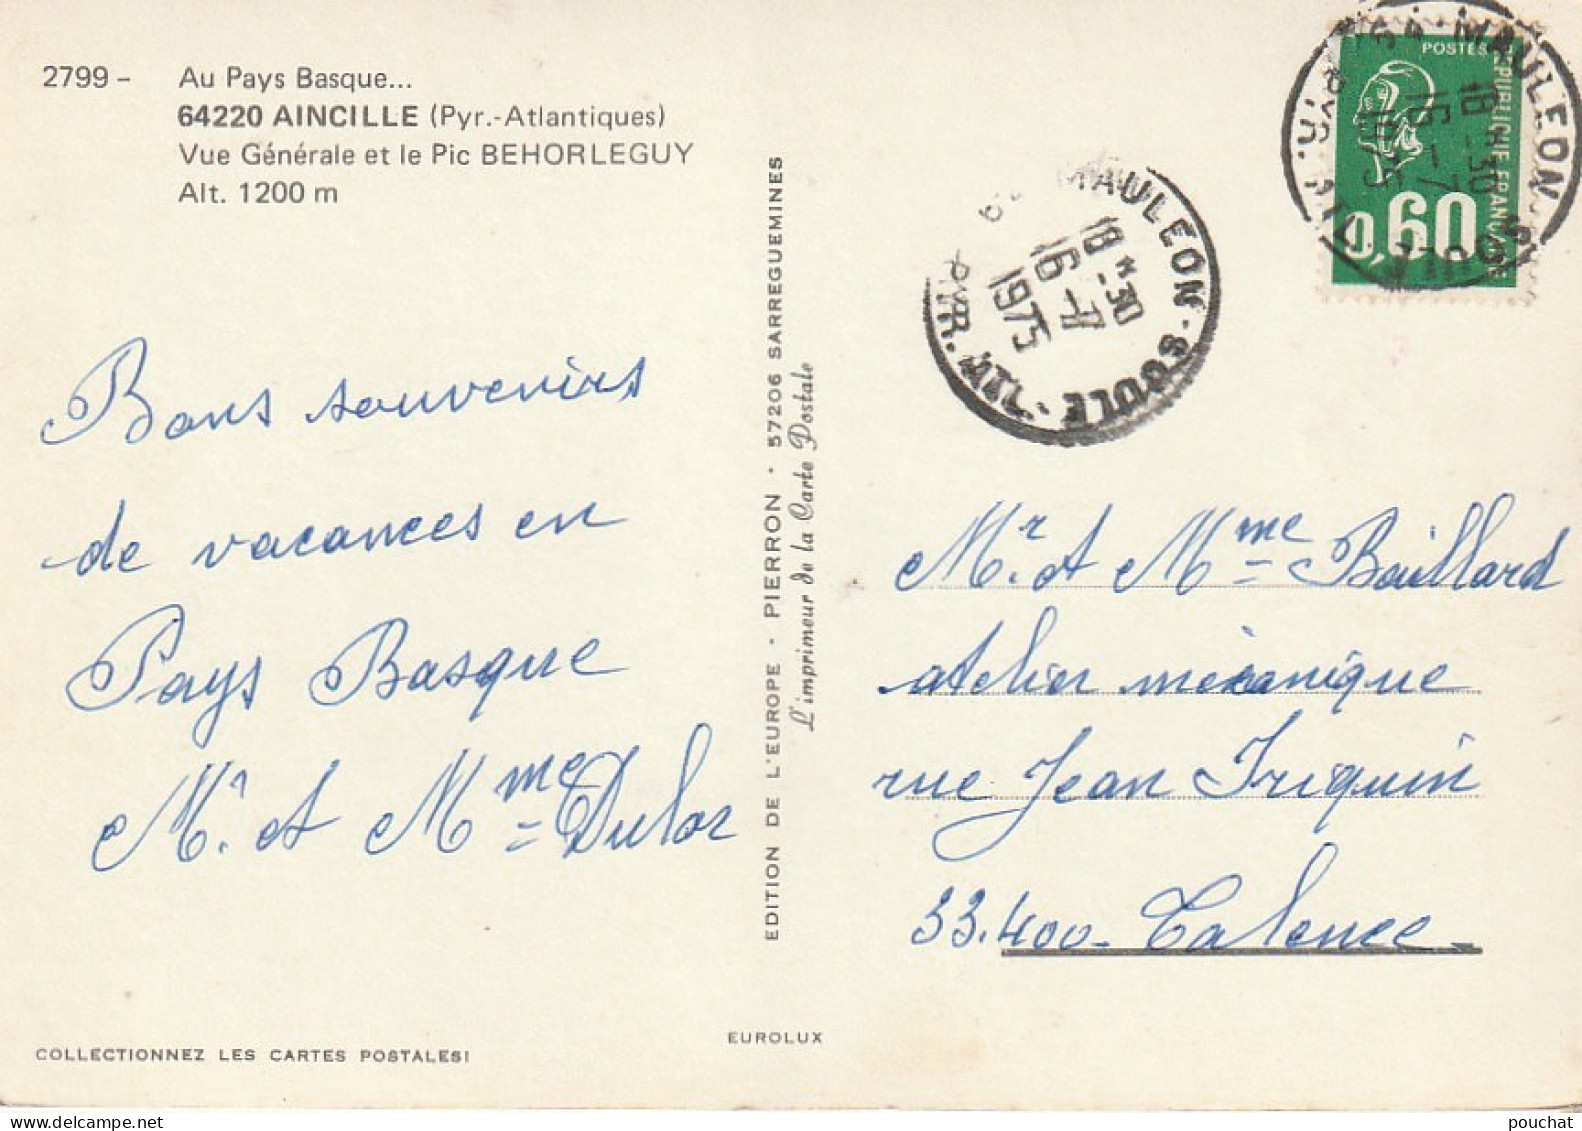 2799 - Au Pays Basque...
64220 AINCILLE (Pyr.-Atlantiques)
Vue Générale et le Pic BEHORLEGUY
Alt. 1200 m
Bons souvenirs
de vacances en
Pays Basque
Mr. et Mme Dulor
COLLECTIONNEZ LES CARTES POSTALES!
EDITION DE L'EUROPE - PIERRON - 57206 SARREGUEMINES
L'imprimeur de la Carte Postale
EUROLUX
MAULEON-SOULE
PYR. ATL.
18 * 30
16 - 7
1975
POSTES
REPUBLIQUE FRANCAISE
0,60
64 - MAULEON SOULE
18 * 30
16 - 7
1975
Mr. et Mme Baillard
atelier mécanique
rue Jean Iriquin
33.400 - Talence -
pouchat